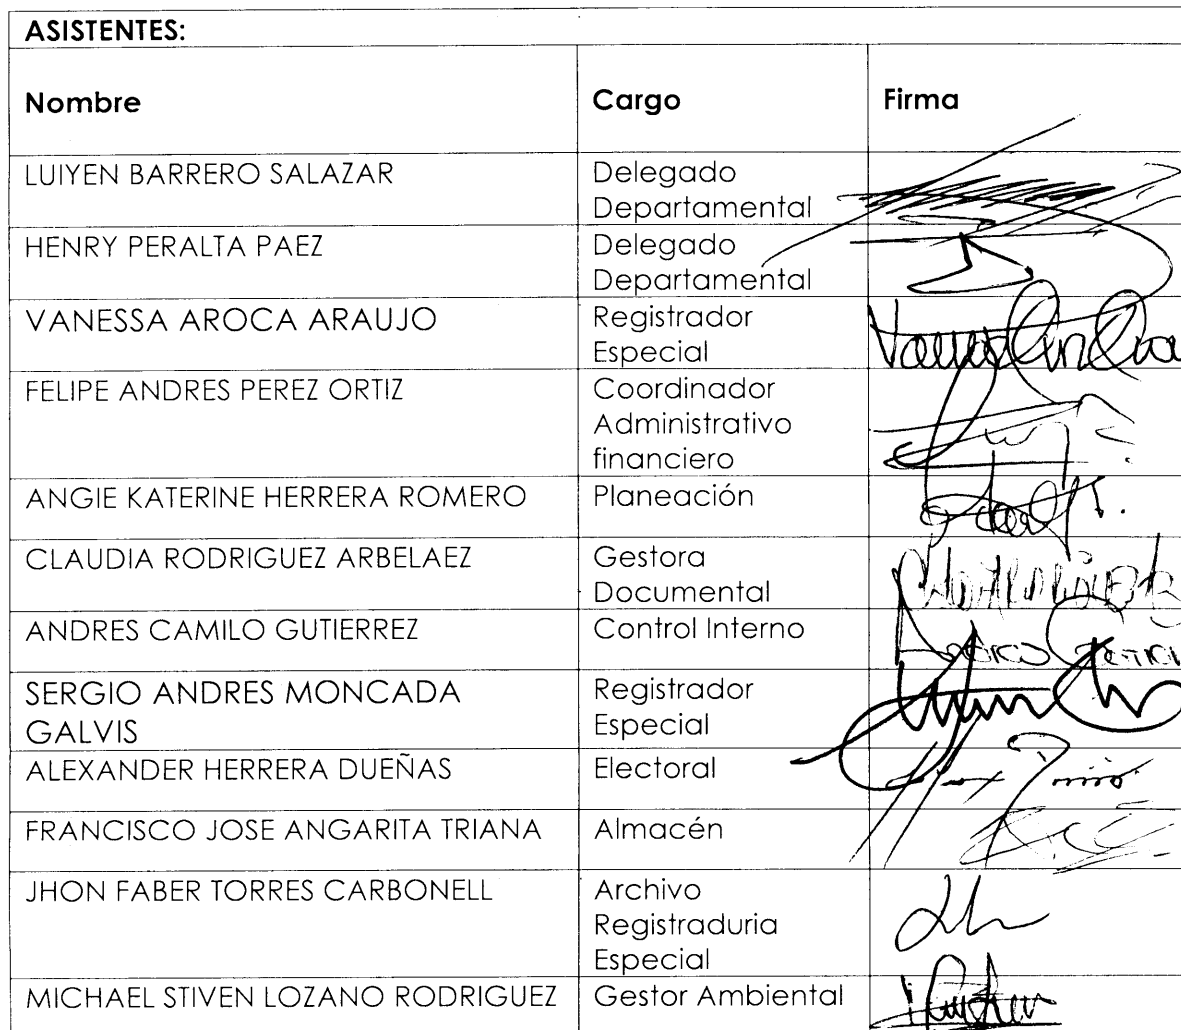 ASISTENTES:
Nombre Cargo Firma
LUIYEN BARRERO SALAZAR Delegado
Departamental
HENRY PERALTA PAEZ Delegado
Departamental
VANESSA AROCA ARAUJO Registrador
Especial
FELIPE ANDRES PEREZ ORTIZ Coordinador
Administrativo
financiero
ANGIE KATERINE HERRERA ROMERO Planeación
CLAUDIA RODRIGUEZ ARBELAEZ Gestora
Documental
ANDRES CAMILO GUTIERREZ Control Interno
SERGIO ANDRES MONCADA Registrador
GALVIS Especial
ALEXANDER HERRERA DUEÑAS Electoral
FRANCISCO JOSE ANGARITA TRIANA Almacén
JHON FABER TORRES CARBONELL Archivo
Registraduria
Especial
MICHAEL STIVEN LOZANO RODRIGUEZ Gestor Ambiental